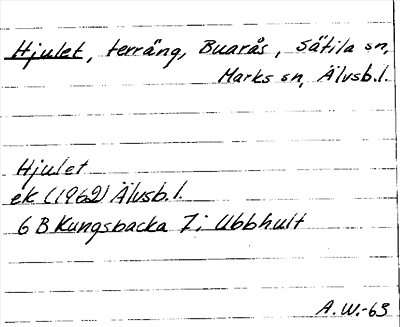 Hjulet, terräng, Buarås, Sätila sn,
Marks sn, Älvsb.l.
Hjulet
ek (1962) Älvsb.l.
6 B Kungsbacka 7i Ubbhult
A.W.-63